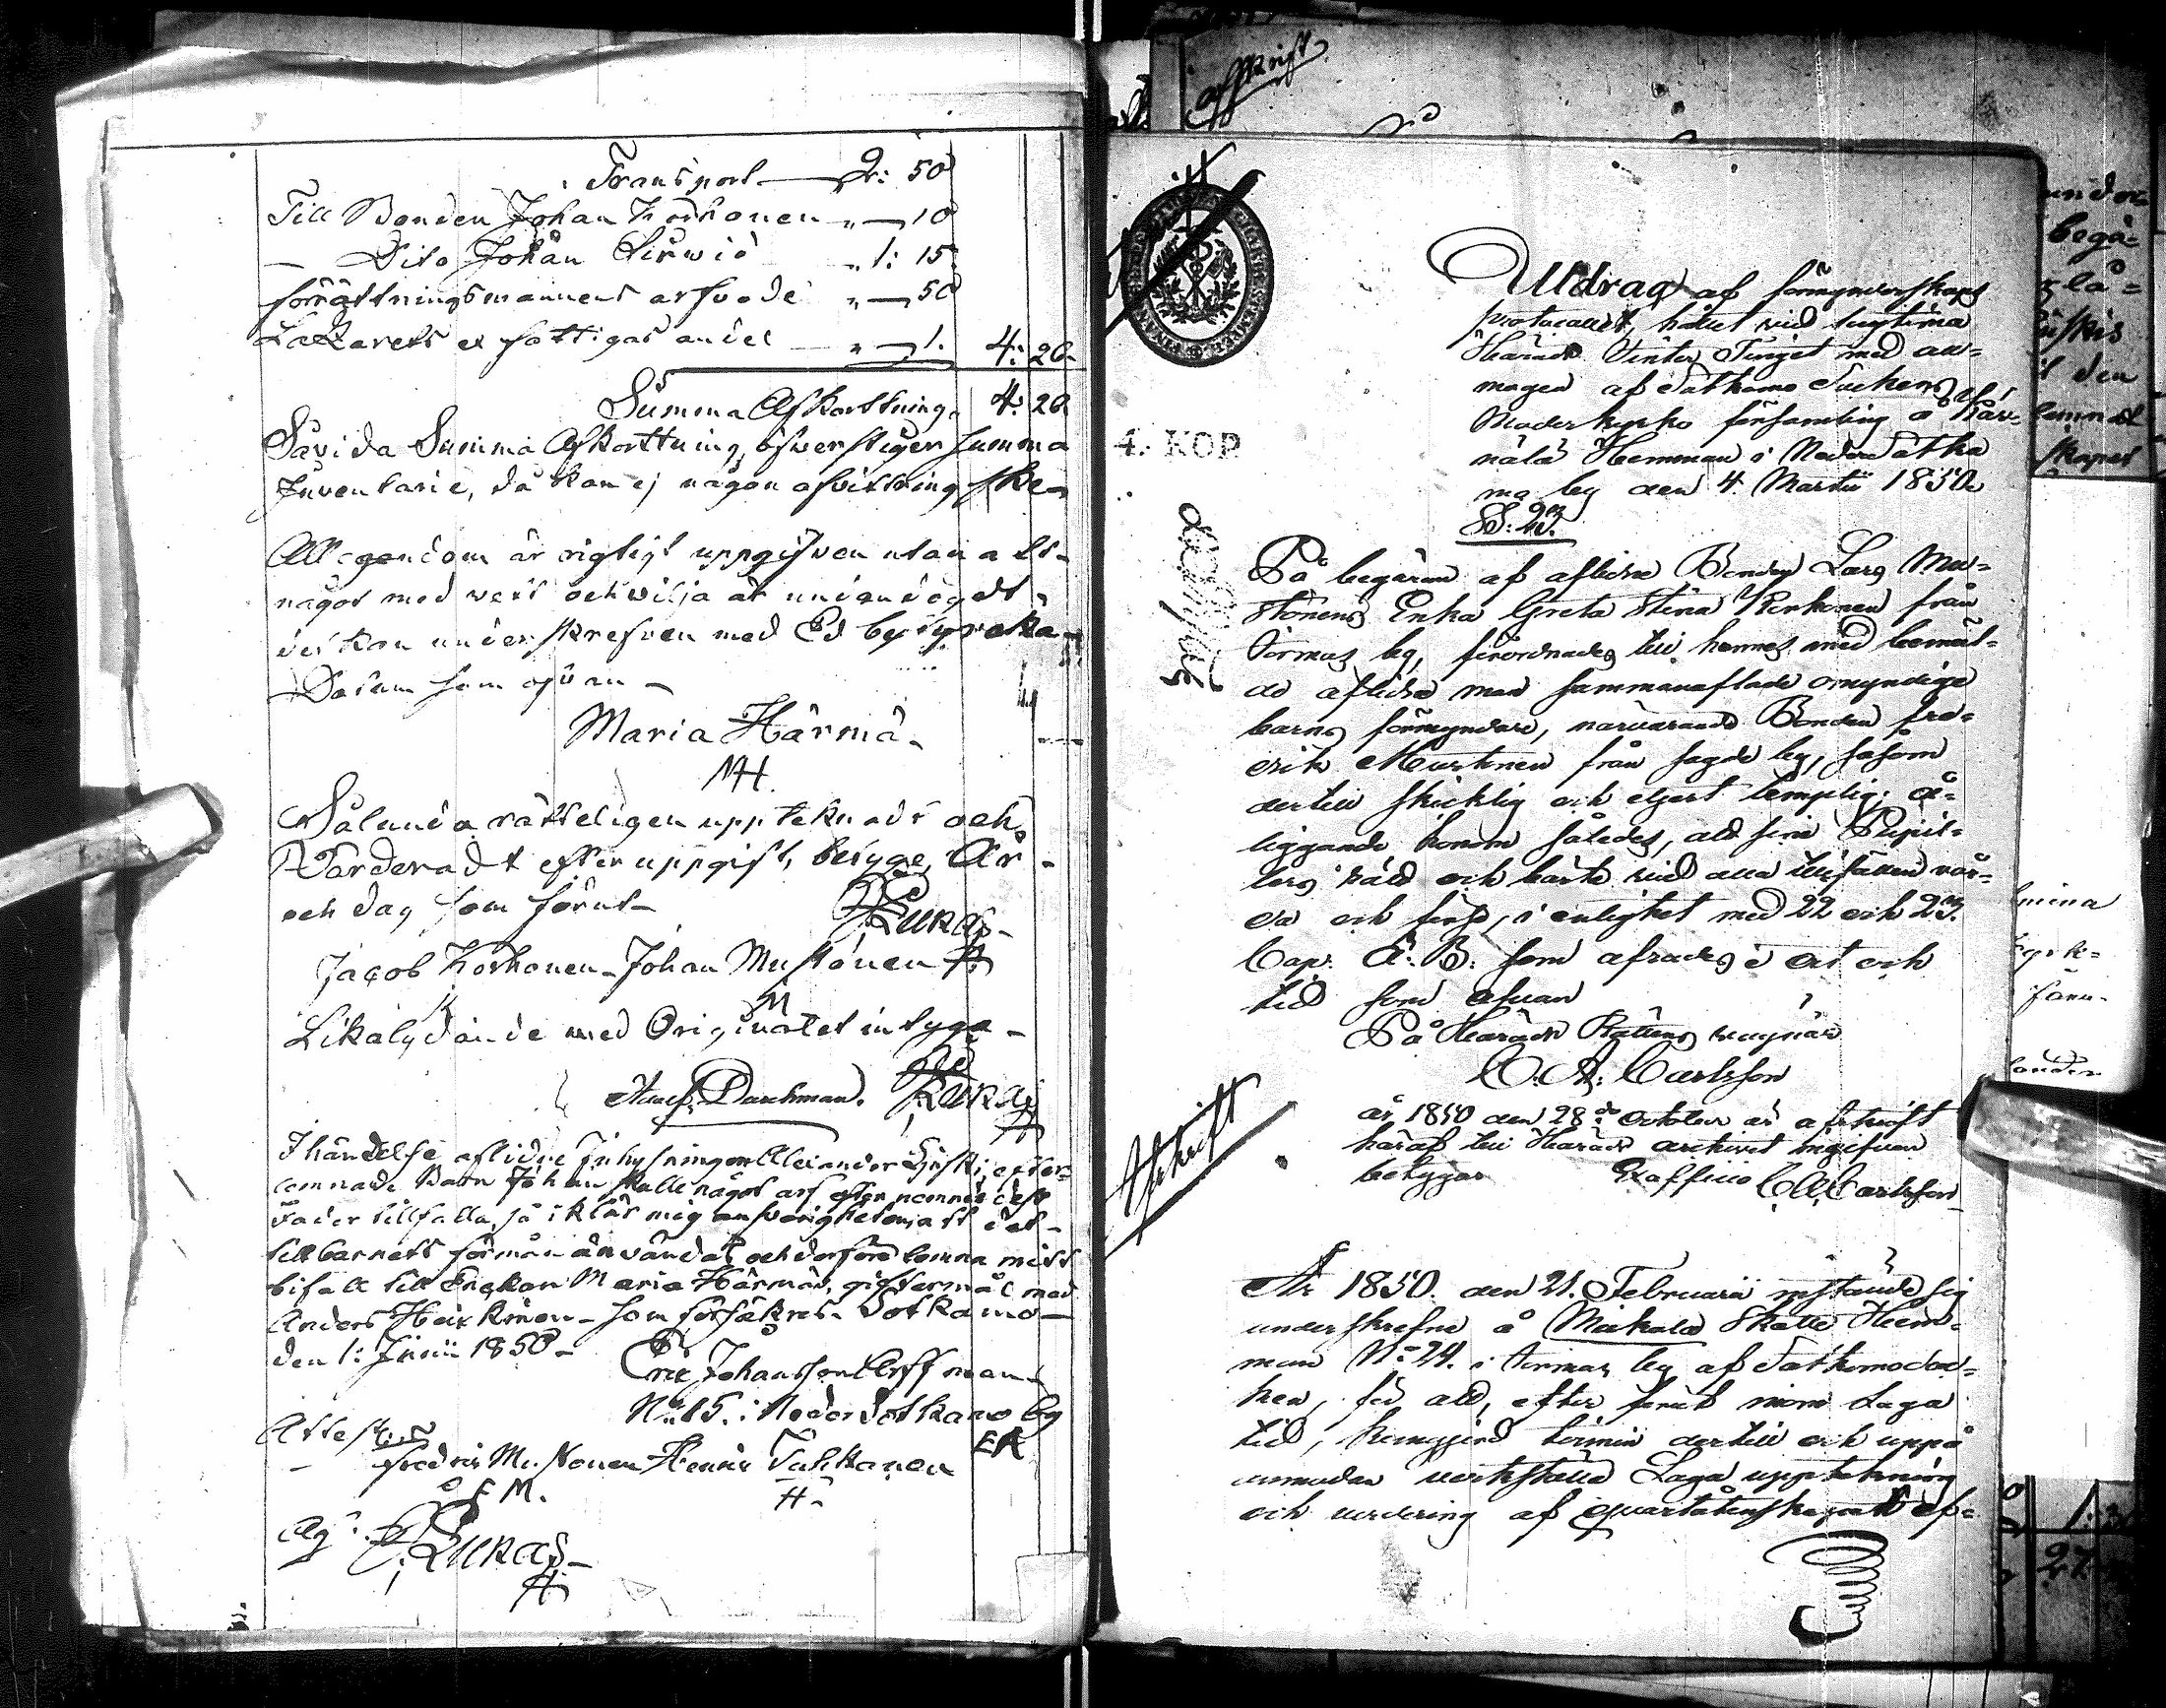 Transport — 2: 50
Till Bonden Johan Korhonen „ — 10
— Dito Johan Sirwiö „ 1: 15
förrättningsmannens arfvode „ — 50
LaZarets et fattigas andel — „ — 1. 4: 26.
Summa Afkorttning. 4: 26.
Såvida Summa Afkorttning, öfverstiger summa
Inventarie, då kan ej någon afvittring ske —
All egendom är rigtigt uppgifven utan att
något med vett och vilja är undandögdt,
det kan underskrefven med Ed bestyrcka —
Datum som ofvan —
Maria Härmä —
MH.
Sålunda rätteligen upptecknadt och
Värderadt efter uppgift, betyge, År —
och dag som förut —
Lukas —
Jacob Korhonen — Johan Mustonen
K M
Likalydande med Originalet intyga —
Dauhman. Lukas
I händelse aflidne Inhysningen Alexander efter-
lemnade Barn Johan skulle något arf efter nemnde dess
Fader tillfalla, så iklär mig ansvarigheten att det —
till barnets förmån användas och derföre lemna mitt
bifall till Enckan Maria Härmäs, giftermål med
Anders Heikkinen — som försäkras. Sotkamo —
den 1: Junii 1850 —
Eric Johansson
No 15. i Neder Sotkamo by
EK
Attesteras
Fredric Mustonen Henric Tuhkanen
F M. H —
Lukas —
afskrift
Utdrag af förmynderskaps
protocollet, hållet vid lagtima
Härads Vinter Tinget med all-
mogen af Sotkamo Sockens
Moderkyrko församling å Kär-
nälä Hemman i Neder Sotka
mo by den 4. Martii 1850.
§: 23.
4. KOP.
På begäran af aflidne Bonden Lars Mu-
stonens Enka Greta Stina Kerkonen från
Tipasoja by, förordnades till hennes med bemäl-
de aflidne man sammanaflade omyndige
barns förmyndare, närvarande Bonden Fre-
drik Mustonen från sagde by, såsom
dertill skicklig och eljest lämplig; å-
liggande honom således, att sine Pupil-
lers rätt och bästa vid alla tillfällen vår-
da och söka, i enlighet med 22 och 23.
Cap. Ä. B. som afsades i ort och
tid som ofvan
På Härads Rättens vägnar
C. A: Carlsson
År 1850 den 28de October är afskrift
häraf till Härads archivet ingifven
betygar Exofficio C A Carlsson
Afskrift
År 1850. den 21. Februari instälde sig
underskrefne å Mikola Skatte Hem-
man No 24. i by af Sotkamo Soc-
ken, för att, efter förut inom Laga
tid, termin dertill och uppå
anmodan verkställa Laga uppteckning
och värdering af qvarlåtenskapen ef-